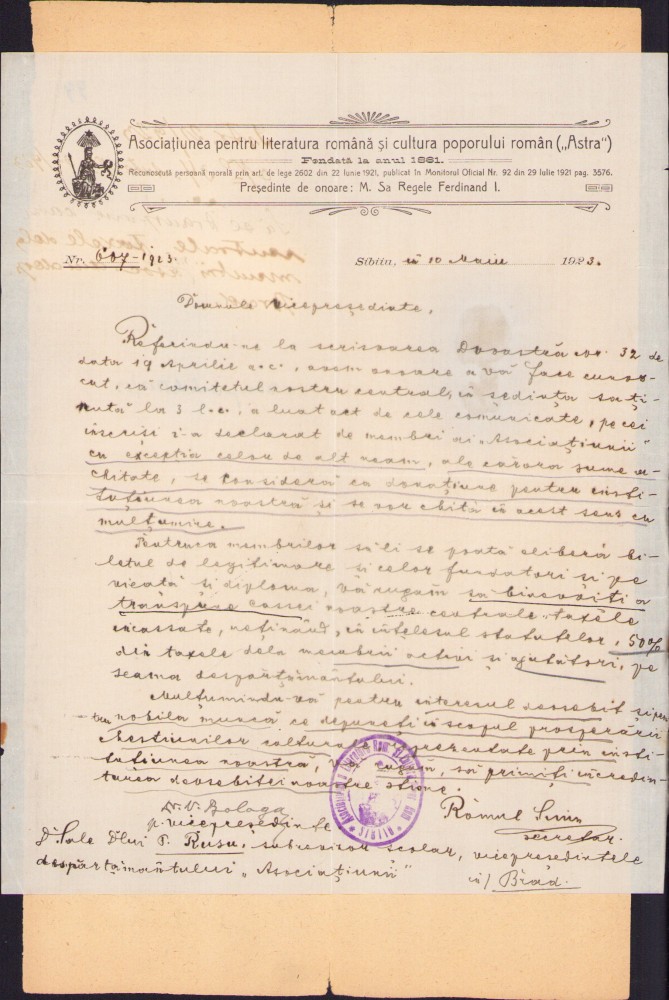 Asociațiunea pentru literatura română și cultura poporului român („Astra")
Fondată la anul 1861.
Recunoscută persoană morală prin art. de lege 2602 din 22 Iunie 1921, publicat în Monitorul Oficial Nr. 92 din 29 Iulie 1921 pag. 3576.
Președinte de onoare: M. Sa Regele Ferdinand I.
Nr. 607-1923
Sibiiu, în 10 Maiu 1923.
Domnule Vicepreședinte,
Referindu-ne la scrisoarea Dvoastră Nr. 32 de
data 19 Aprilie a.c., avem onoare a vă face cunos-
cut, că comitetul nostru central, în ședința sa ți-
nută la 3 l.c., a luat act de cele comunicate, pe cei
înscriși i-a declarat de membri ai „Asociațiunii"
cu excepția celor de alt neam, ale căror sume a-
chitate, se consideră ca donațiune pentru insti-
tuțiunea noastră și se vor chita în acest sens cu
mulțumire.
Pentruca membrilor să li se poată eliberà bi-
letul de legitimare și celor fundatori și pe
vieață și diploma, Vă rugăm să binevoiți a
transpune cassei noastre centrale taxele
încassate, reținând, în înțelesul statutelor, 50%
din taxele dela membrii activi și ajutători, pe
seama despărțământului.
Mulțumindu-vă pentru interesul deosebit și pen-
tru nobila muncă ce depuneți în scopul prosperării
chestiunilor culturale reprezentate prin insti-
tuțiunea noastră, Vă rugăm, să primiți încredin-
țarea deosebitei noastre stime.
Dr. V. Bologa
p. vicepreședinte
Romul Simu
secretar.
D-Sale Dlui P. Rusu, subrevizor școlar, vicepreședintele
despărțământului „Asociațiunii"
în/ Brad.